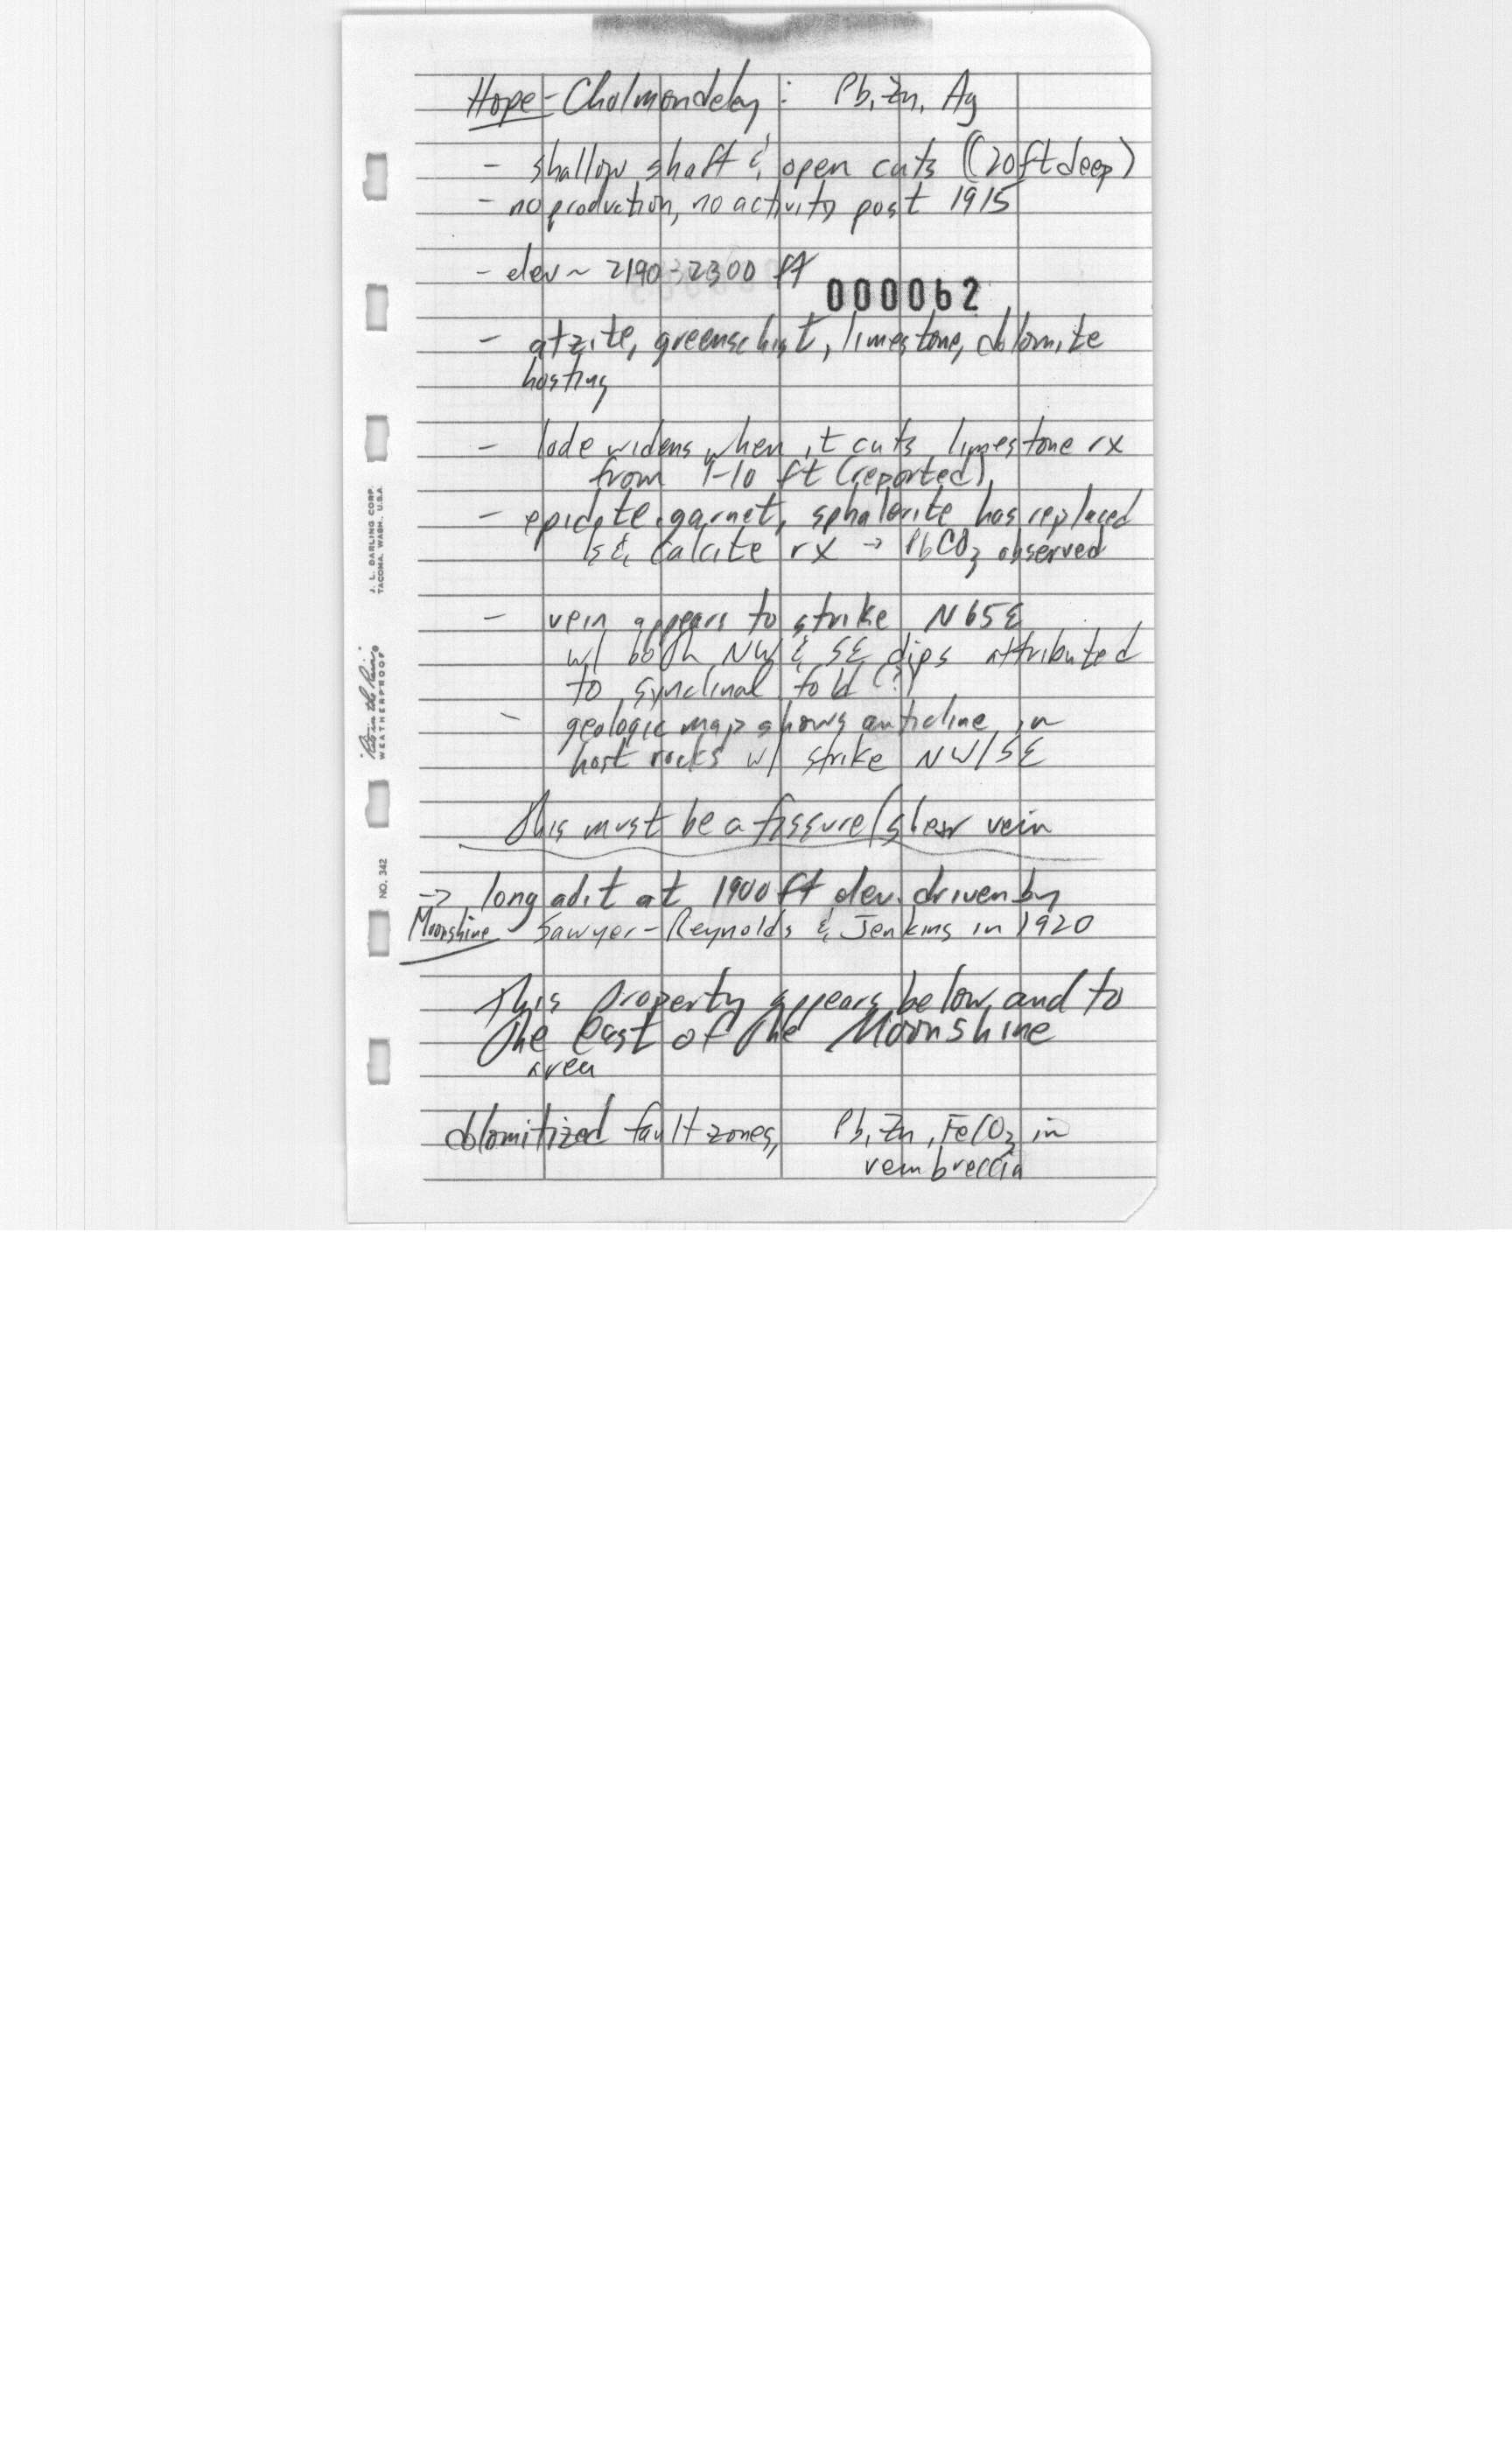 Hope - Cholmondeley : Pb, Zn, Ag
- shallow shaft & open cuts (20ft deep)
- no production, no activity post 1915
- elev ~ 2190-2300 ft
000062
- qtzite, greenschist, limestone, dolomite
hosting
- lode widens when it cuts limestone rx
from 1-10 ft (reported)
- epidote, garnet, sphalerite has replaced
ls & calcite rx → PbCO3 observed
- vein appears to strike N65E
w/ both NW & SE dips attributed
to synclinal fold (?)
- geologic map shows anticline in
host rocks w/ strike NW/SE
This must be a fissure/shear vein
→ long adit at 1900 ft elev. driven by
Moonshine - Sawyer-Reynolds & Jenkins in 1920
This property appears below and to
the east of the Moonshine
area
dolomitized fault zones, Pb, Zn, FeCO3 in
vein breccia
J. L. DARLING CORP.
TACOMA, WASH. U.S.A.
"Rite in the Rain"
WEATHERPROOF
NO. 342